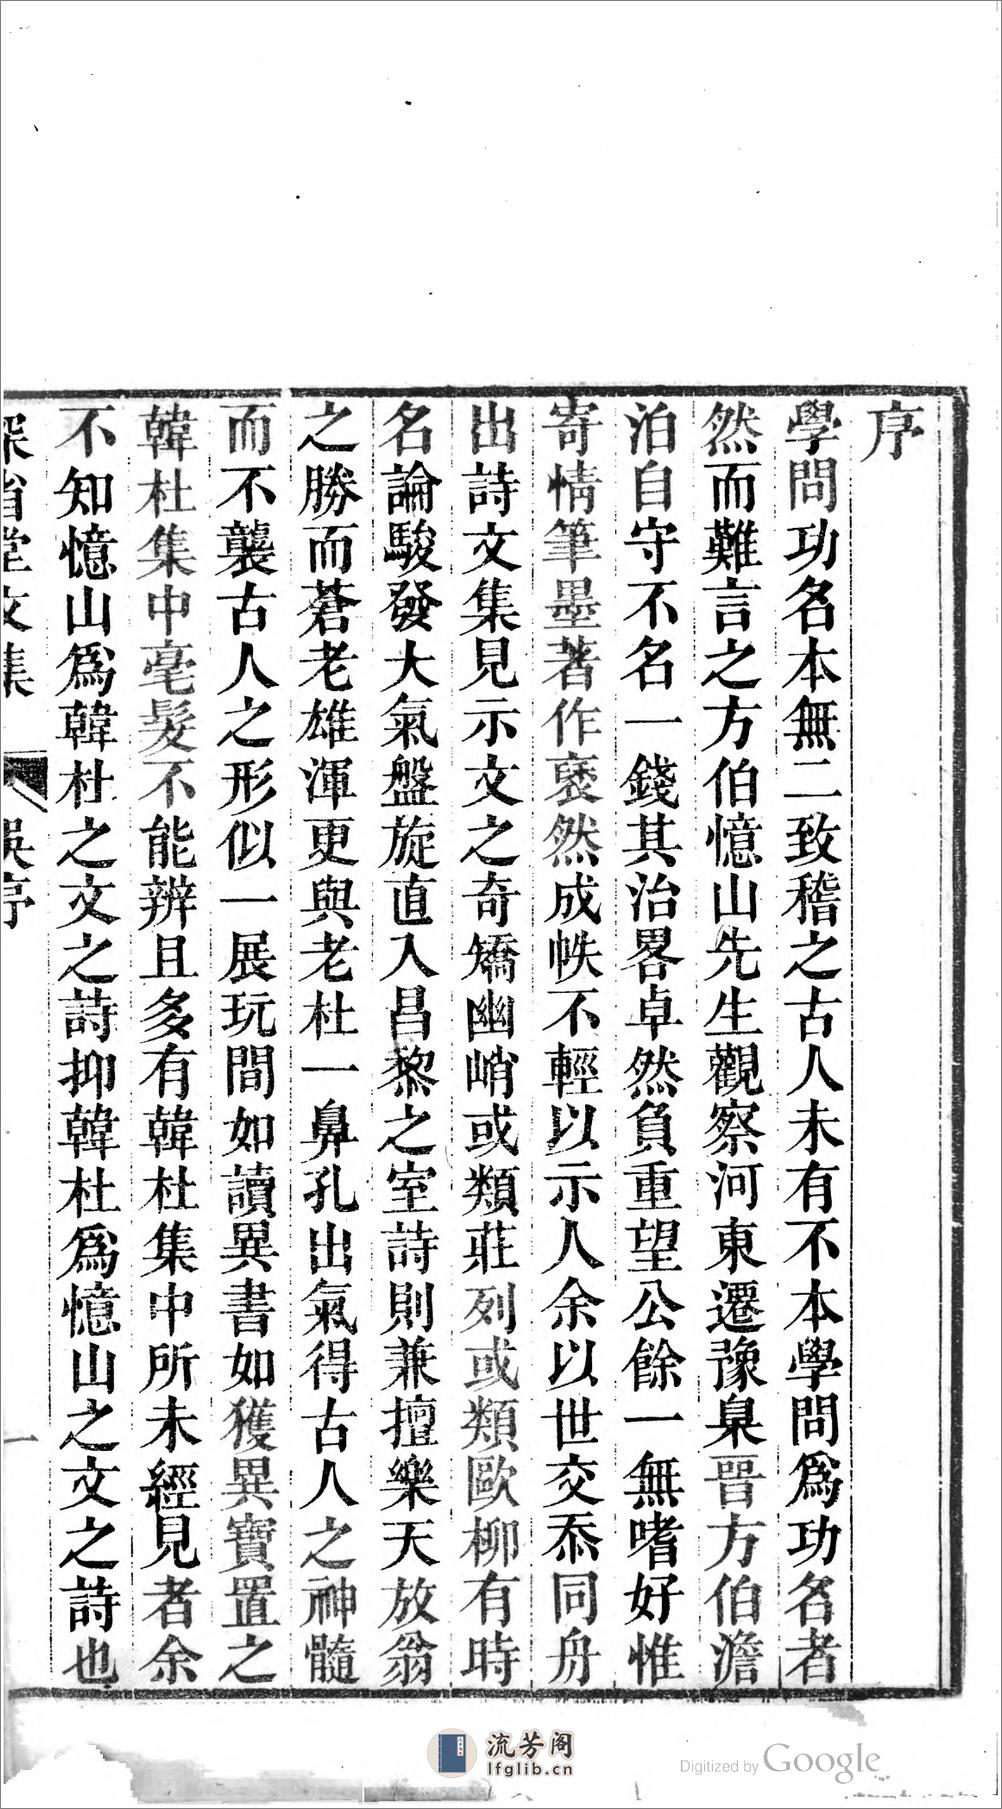 序
學問功名本無二致稽之古人未有不本學問爲功名者
然而難言之方伯憶山先生觀察河東遷豫臬晋方伯澹
泊自守不名一錢其治畧卓然負重望公餘一無嗜好惟
寄情筆墨著作裒然成帙不輕以示人余以世交忝同舟
出詩文集見示文之奇矯幽峭或類莊列或類歐柳有時
名論駿發大氣盤旋直入昌黎之室詩則兼擅樂天放翁
之勝而蒼老雄渾更與老杜一鼻孔出氣得古人之神髓
而不襲古人之形似一展玩間如讀異書如獲異寶置之
韓杜集中毫髮不能辨且多有韓杜集中所未經見者余
不知憶山爲韓杜之文之詩抑韓杜爲憶山之文之詩也
深省堂文集 吳序 一
流芳阁
lfglib.cn
Digitized by Google